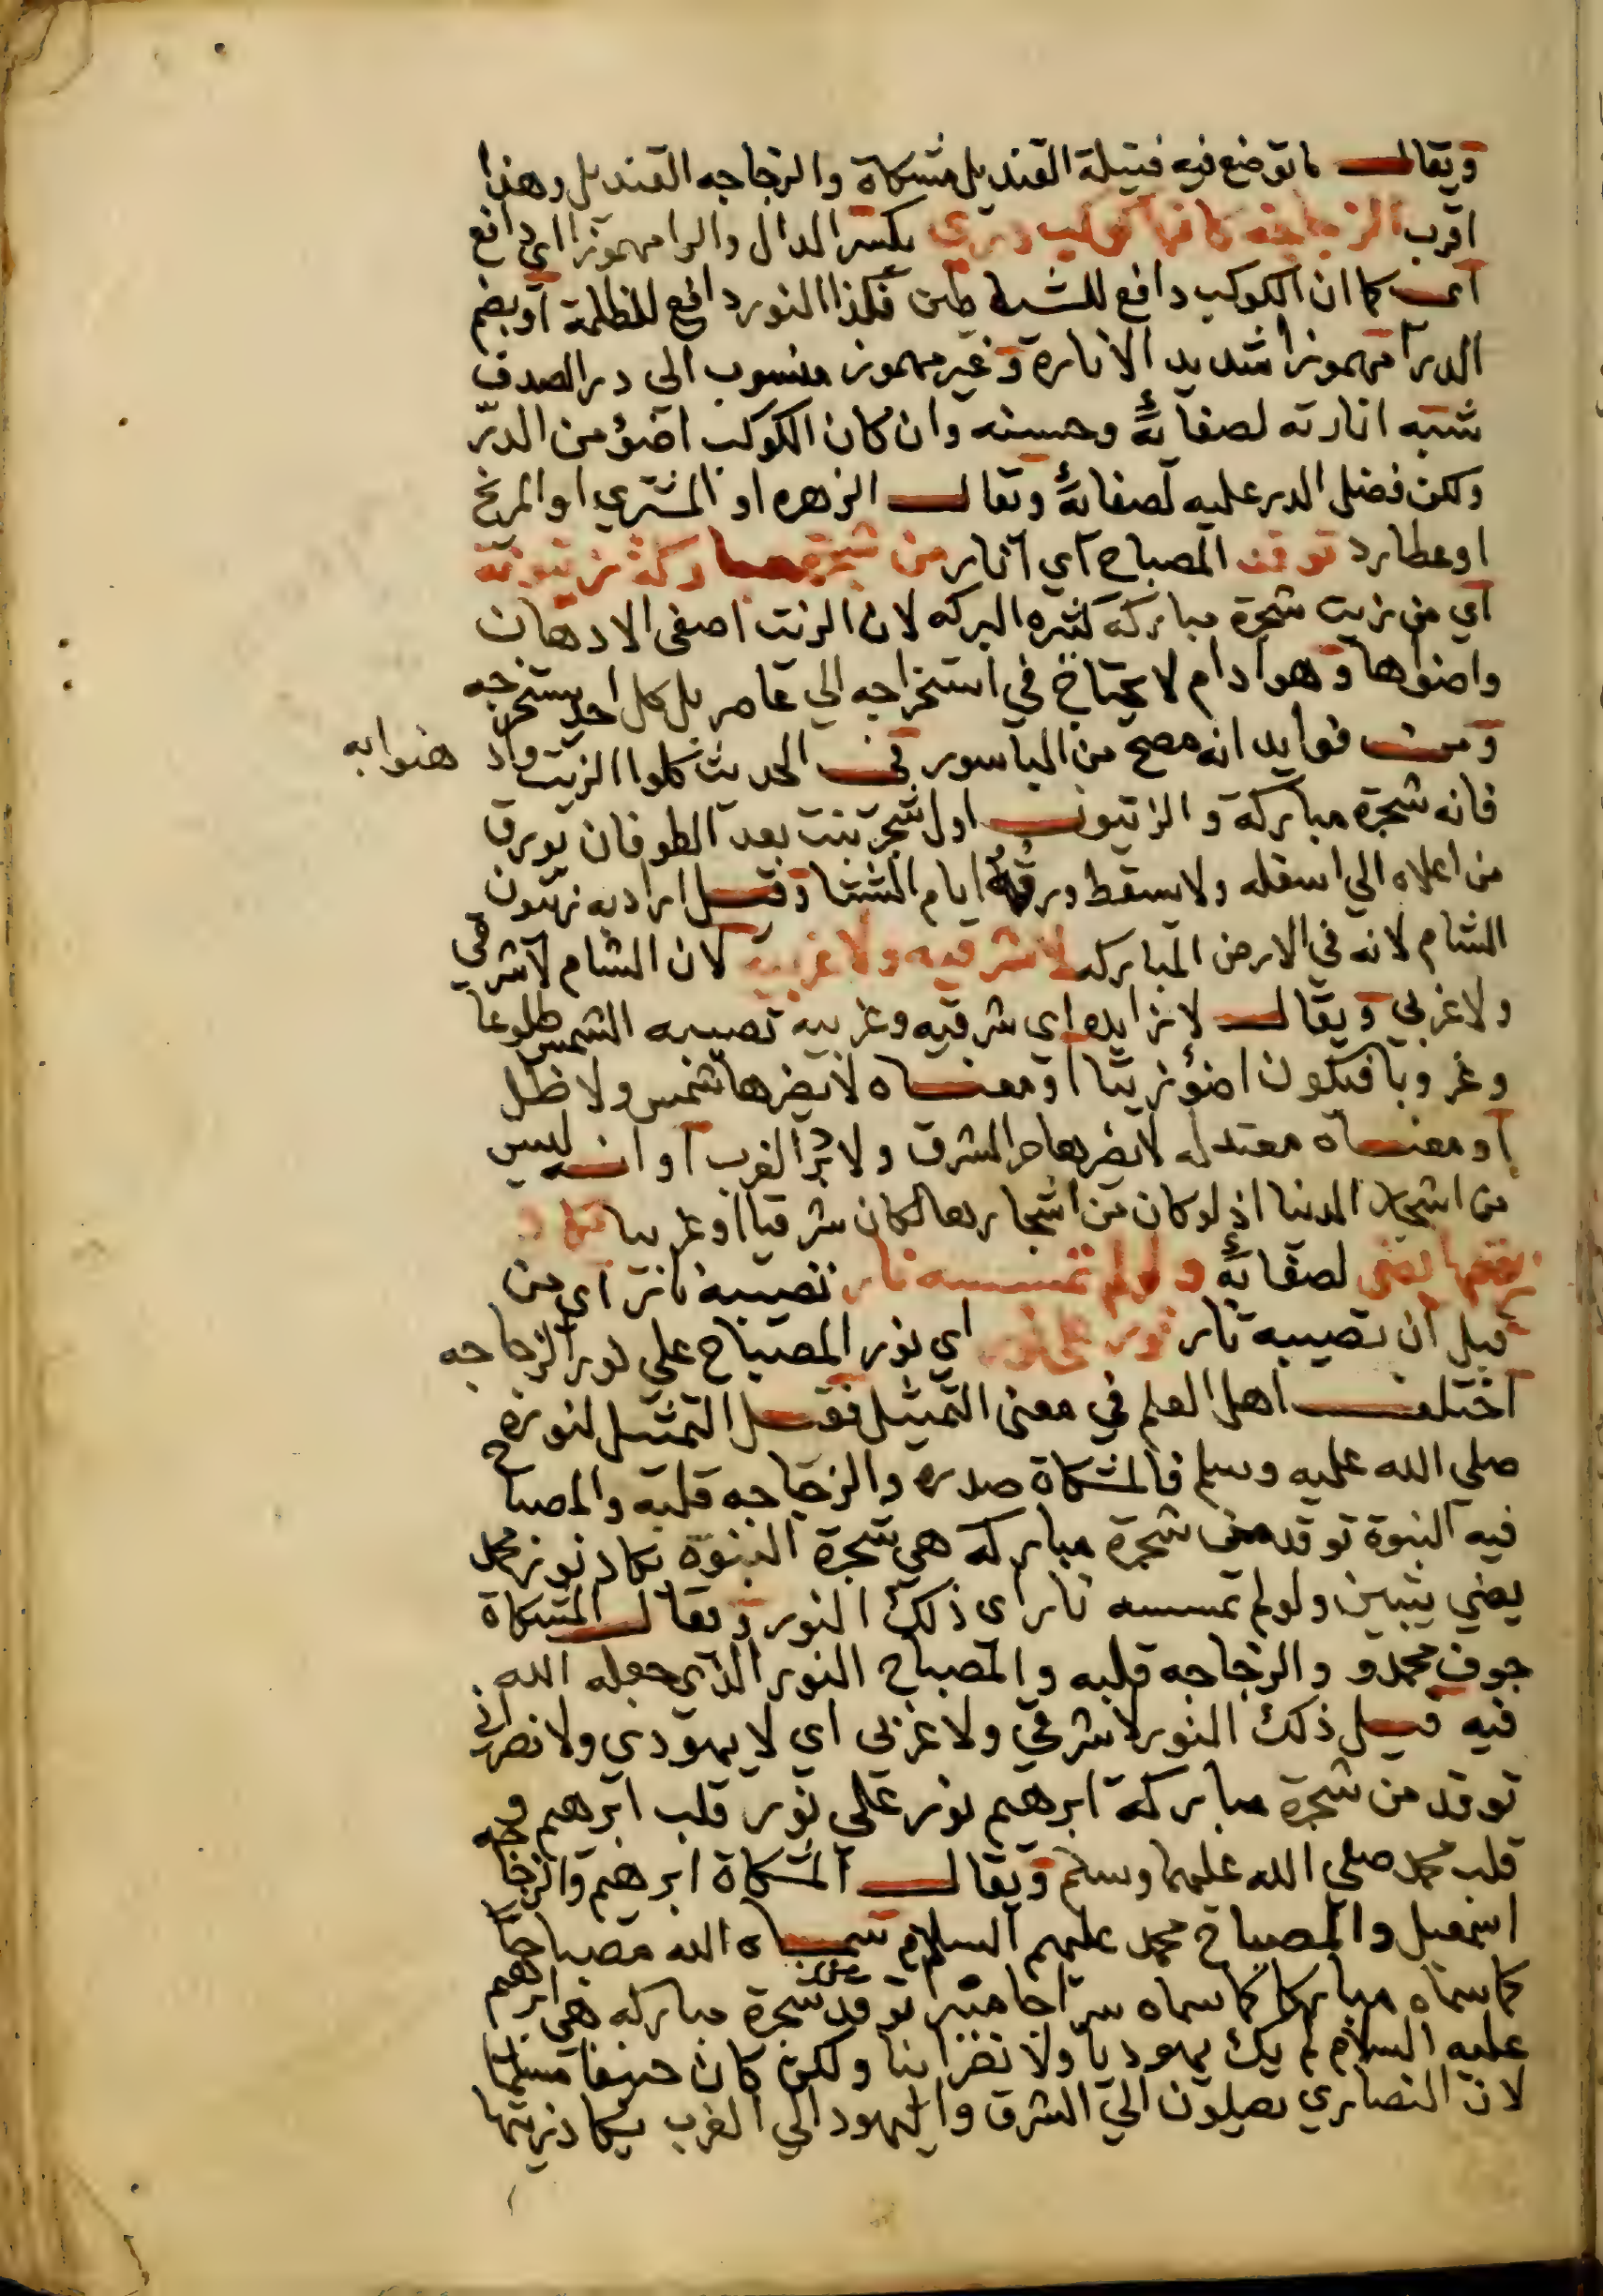 ويقال ما توضع فيه فتيلة القنديل مشكاة والزجاجه القنديل وهذا
اقرب الزجاجة كانها كوكب دري بكسر الدال والرا مهموزا اي دافع
اي كما ان الكوكب دافع للشيطين فكذا النور دافع للظلمة او بضم
الدرا مهموزا شديد الانارة وغير مهموز منسوب الي در الصدف
شبه انارته لصفائه وحسنه وان كان الكوكب اضوٴ من الدر
ولكن فضل الدر عليه لصفائه ويقال الزهره او المشتري او المريخ
او عطارد توقد المصباح اي انار من شجرة مباركة زيتونة
اي من زيت شجرة مباركه كثيره البركه لان الزيت اصفى الادهان
واضوأها وهو ادام لا يحتاج في استخراجه الي عاصر بل كل احد يستخرجه
ومن فوايد انه مصح من الباسور في الحديث كلوا الزيت واد هنوا به
فانه شجرة مباركة والزيتون اول شجر نبت بعد الطوفان يورق
من اعلاه الي اسفله ولا يسقط ورقه ايام الشتا وقيل اراد به زيتون
الشام لانه في الارض المباركه لا شرقيه ولا غربية لان الشام لا شرقي
ولا غربي ويقال لا زايده اي شرقيه وغربيه تصيبه الشمس طلوعا
وغروبا فيكون اضوٴ زيتا او معناه لا يضرها شمس ولا ظل
او معناه معتدله لا يضرها حر المشرق ولا برد الغرب او انه ليس
من اشجار الدنيا اذ لو كان من اشجارها لكان شرقيا او غربيا يكاد
زيتها يضي لصفائه ولو لم تمسسه نار تصيبه نار اي من
قبل ان تصيبه نار نور على نور اي نور المصباح علي نور الزجاجه
اختلف اهل العلم في معنى التمثيل فقيل التمثيل لنوره
صلي الله عليه وسلم فالمشكاة صدره والزجاجه قلبه والمصباح
فيه النبوة توقد من شجرة مباركه هي شجرة النبوة يكاد نور محمد
يضي يتبين ولو لم تمسسه نار اى ذلك النور ويقال المشكاة
جوف محمد و والزجاجه قلبه والمصباح النور الذي جعله الله
فيه قيل ذلك النور لا شرقي ولا غربي اي لا يهودي ولا نصراني
توقد من شجرة مباركة ابرهيم نور علي نور قلب ابرهيم و
قلب محمد صلي الله عليهما وسلم ويقال المشكاة ابرهيم والزجاجه
اسمعيل والمصباح محمد عليهم السلام سماه الله مصباحا
كما سماه مباركا كما سماه سراجا منيرا توقد من شجرة مباركه هي ابرهيم
عليه السلام لم يك يهوديا ولا نصرانيا ولكن كان حنيفا مسلما
لان النصاري يصلون الي الشرق واليهود الي الغرب يكاد زيتها